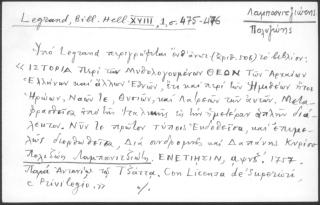 Legrand, Bibl. Hell. XVIII, 1, σ. 475-476
Λαμπανιτζιώτης
Πολυζώης
Ὑπὸ Legrand περιγράφεται (ἀριθ. 506) τὸ βιβλίον:
«ἹΣΤΟΡΙΑ Περὶ τῶν Μυθολογουμένων ΘΕΩΝ τῶν Ἀρχαίων
Ἑλλήνων καὶ ἄλλων Ἐθνῶν, ἔτι καὶ περὶ τῶν Ἡμιθέων ἤτοι
Ἡρώων, Ναῶν τε, Θυσιῶν, καὶ Λατρειῶν τῶν αὐτῶν. Μετα-
φρασθεῖσα ἀπὸ τῆς Ἰταλικῆς εἰς τὴν ἡμετέραν ἁπλῆν διά-
λεκτον. Νῦν τὸ πρῶτον τύποις Ἐκδοθεῖσα, καὶ ἐπιμε-
λῶς διορθωθεῖσα, Διὰ συνδρομῆς καὶ Δαπάνης Κυρίου
Πολυζώη Λαμπανιτζιώτη. ΕΝΕΤΙΗΣΙΝ, αψνζʹ. 1757.
Παρὰ Ἀντωνίῳ τῷ Τζάττα. Con Licenza de' Superiori,
e Privilegio.»